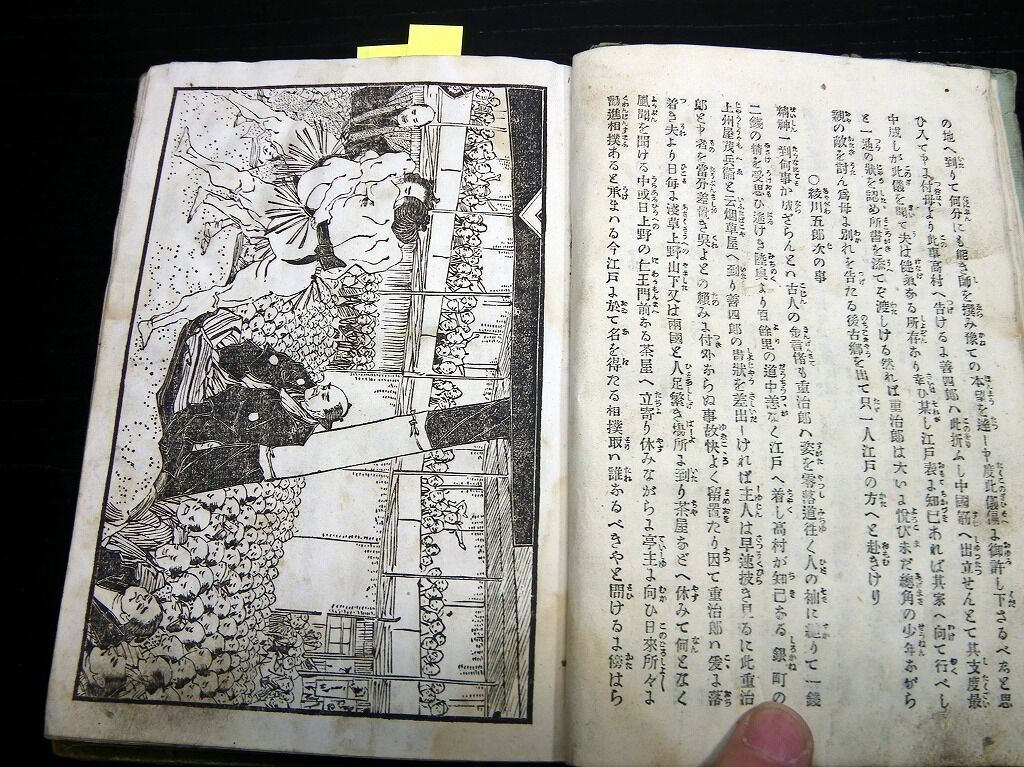 の地へ到りて何分にも能き師を撰み豫ての本望を達し申度此儀偏に御許し下さるべしと思
ひ入て申に付母より此事高村へ告けるに善四郎ハ此折ふし中國筋へ出立せんとて其支度最
中成しが此儀を聞て夫は健氣なる所存なり幸ひ某し江戸表に知己あれば其家へ向て行べし
と一通の狀を認め所書を添てぞ渡しける然れば重治郎は大いに悅びまだ總角の少年ながら
親の敵を討ん爲母に別れを告たる後古鄕を出て只一人江戸の方へと赴きけり
○綾川五郎次の事
精神一到何事か成ざらんとハ古人の金言偖も重治郎ハ姿を窶道往く人の袖に縋りて一錢
二錢の情を受思ひ遙けき陸奥より百餘里の道中恙なく江戸へ着し高村が知己なる銀町の
上州屋茂兵衞と云烟草屋へ到り善四郎の書狀を差出しければ主人は早速披き見るに此重治
郎と申者を當分差置き呉よとの賴みに付外ならぬ事故快よく留置たり因て重治郎ハ爰に落
着き夫より日毎に淺草上野山下又は兩國と人足繁き場所に到り茶屋などへ休みて何となく
風聞を聞ける中或日上野の仁王門前なる茶屋へ立寄り休みながらに亭主に向ひ日來所々に
勸進相撲あると承まハる今江戸に於て名を得たる相撲取ハ誰なるべきやと聞けるに傍はら